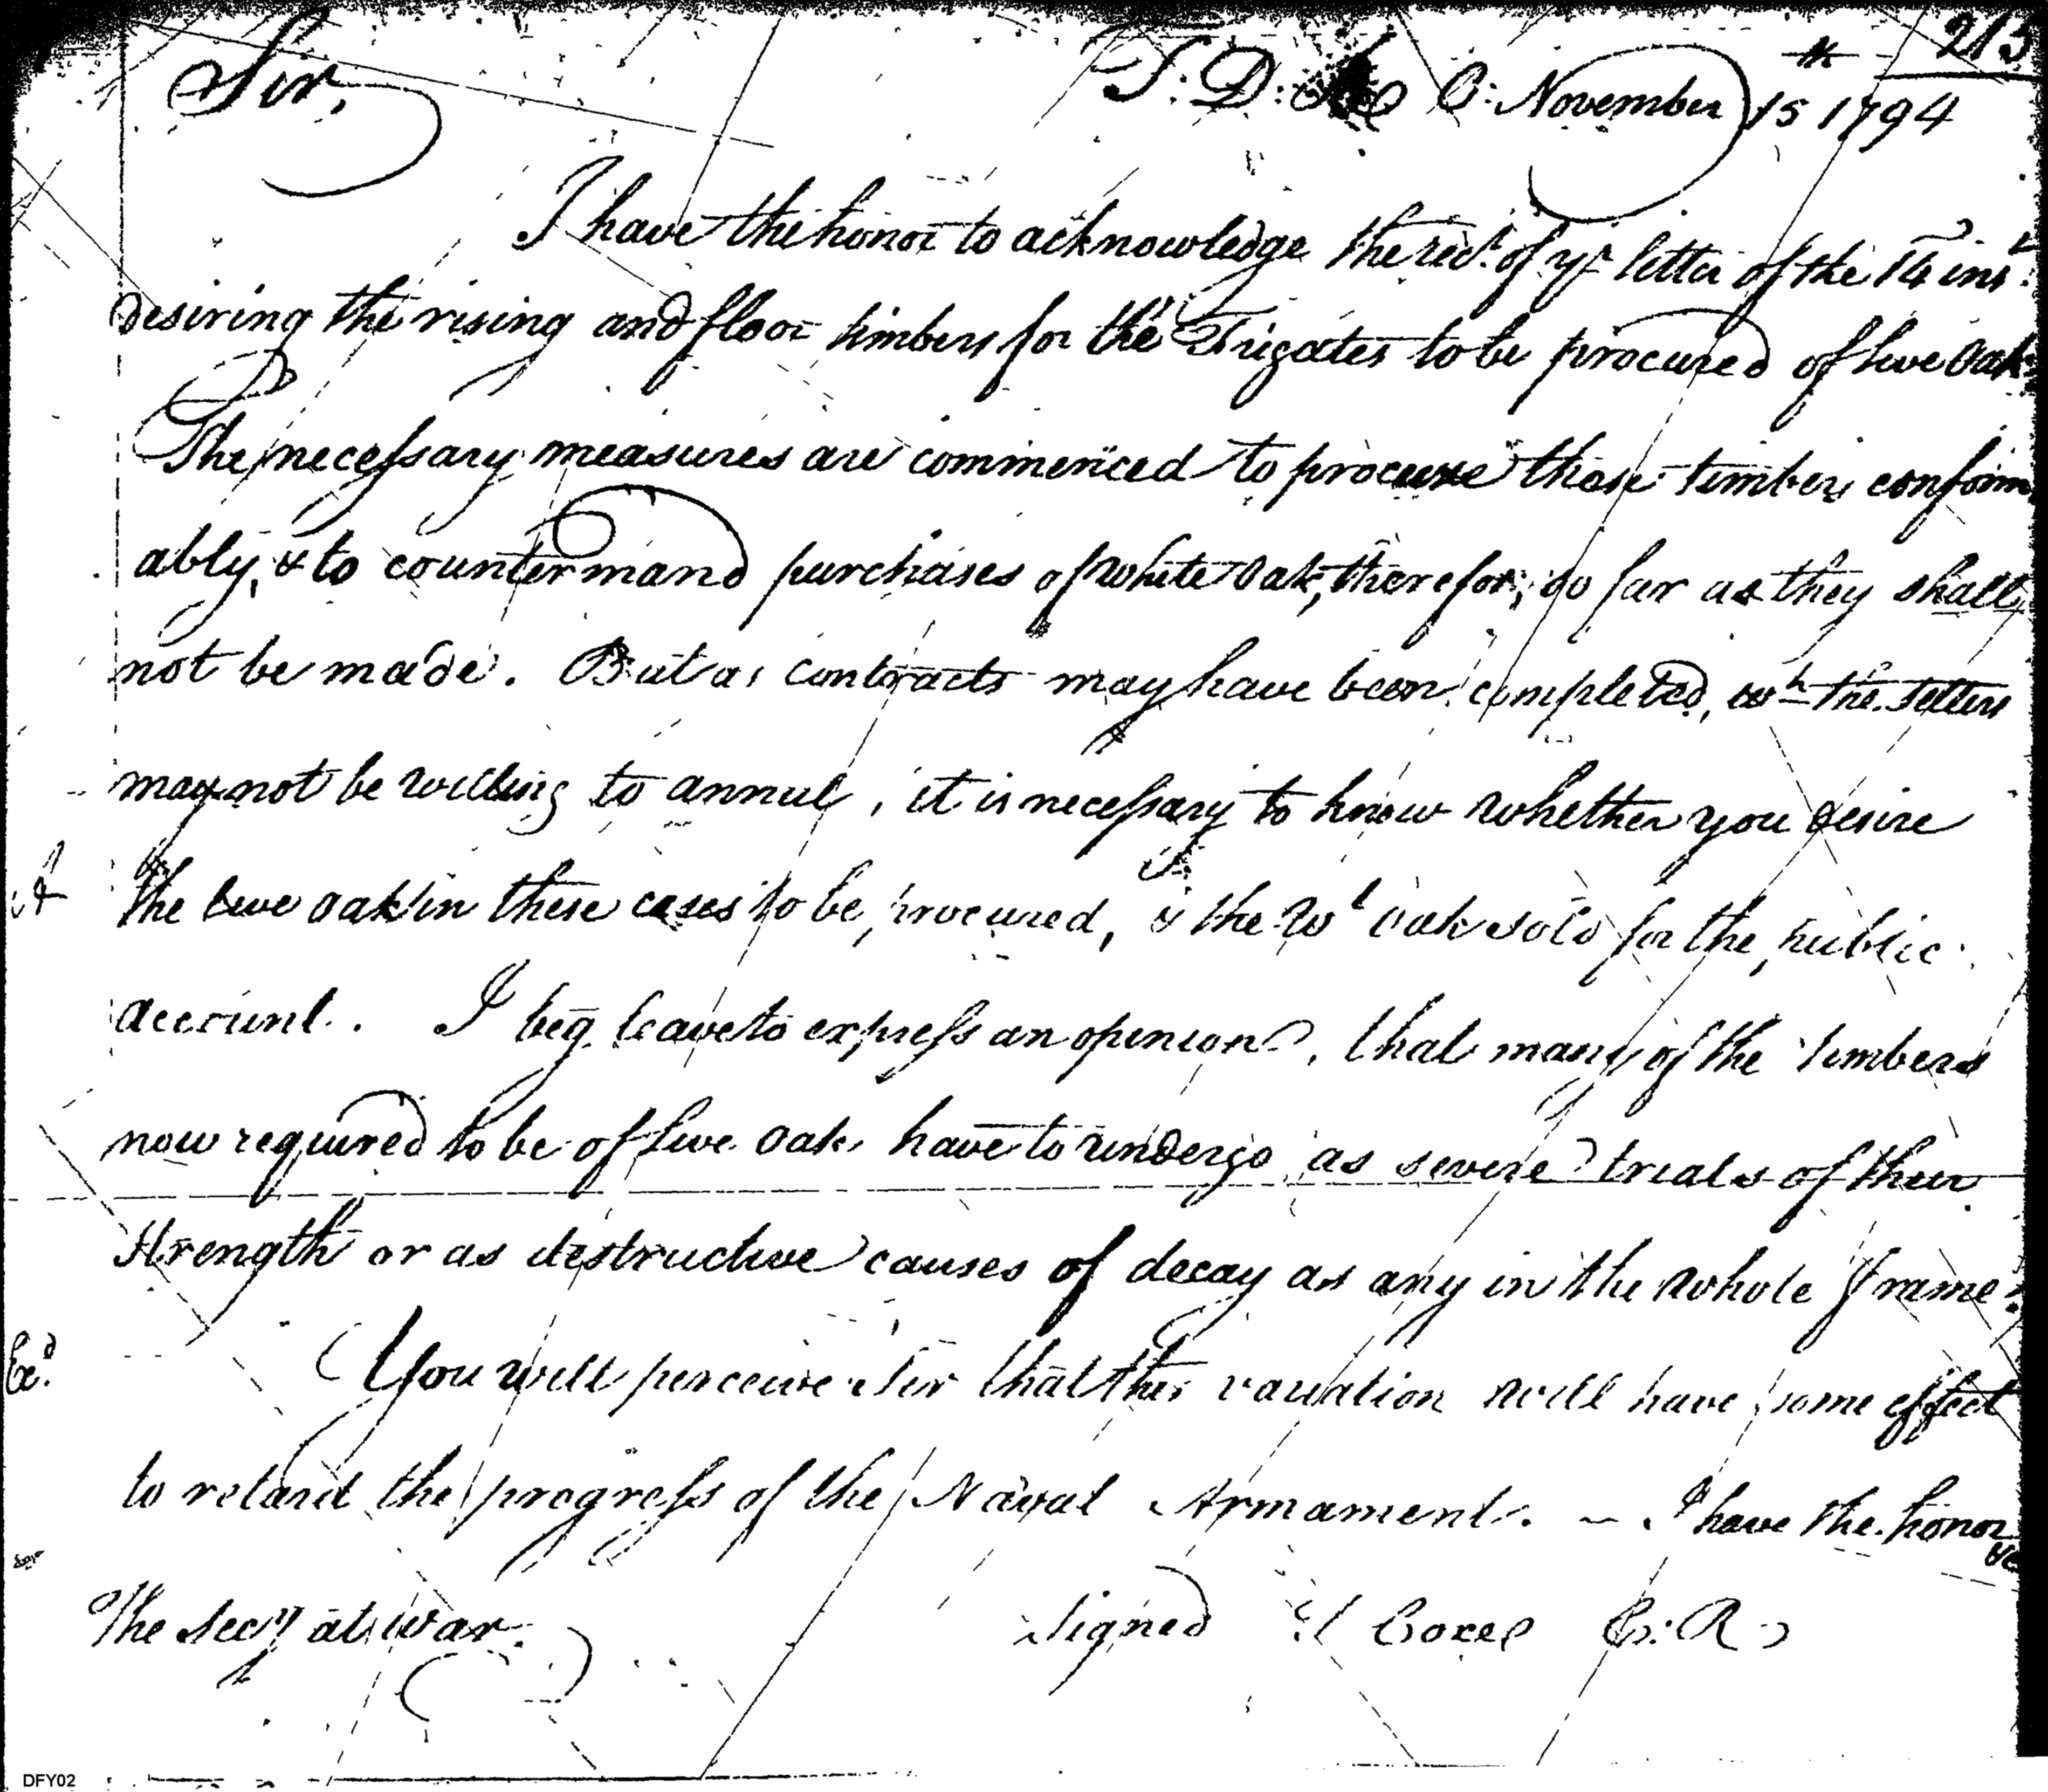 213
Sir,
T: D: R O: November 15 1794
I have the honor to acknowledge the rec.t of yr letter of the 14 inst
desiring the rising and floor timbers for the Frigates to be procured of live Oak.
The necessary measures are commenced to procure these timbers conform
ably, & to countermand purchases of white Oak, therefor, so far as they shall
not be made. But as contracts may have been completed, wh the sellers
may not be willing to annul, it is necessary to know whether you desire
the live oak in these cases to be procured, & the Wt oak sold for the public
account. I beg leave to express an opinion, that many of the timbers
now required to be of live oak have to undergo as severe trials of their
strength or as destructive causes of decay as any in the whole frame.
Exd.
You will perceive Sir that this variation will have some effect
to retard the progress of the Naval Armament. — I have the honor
&c
The Secy at war
signed T Coxe C: R
DFY02